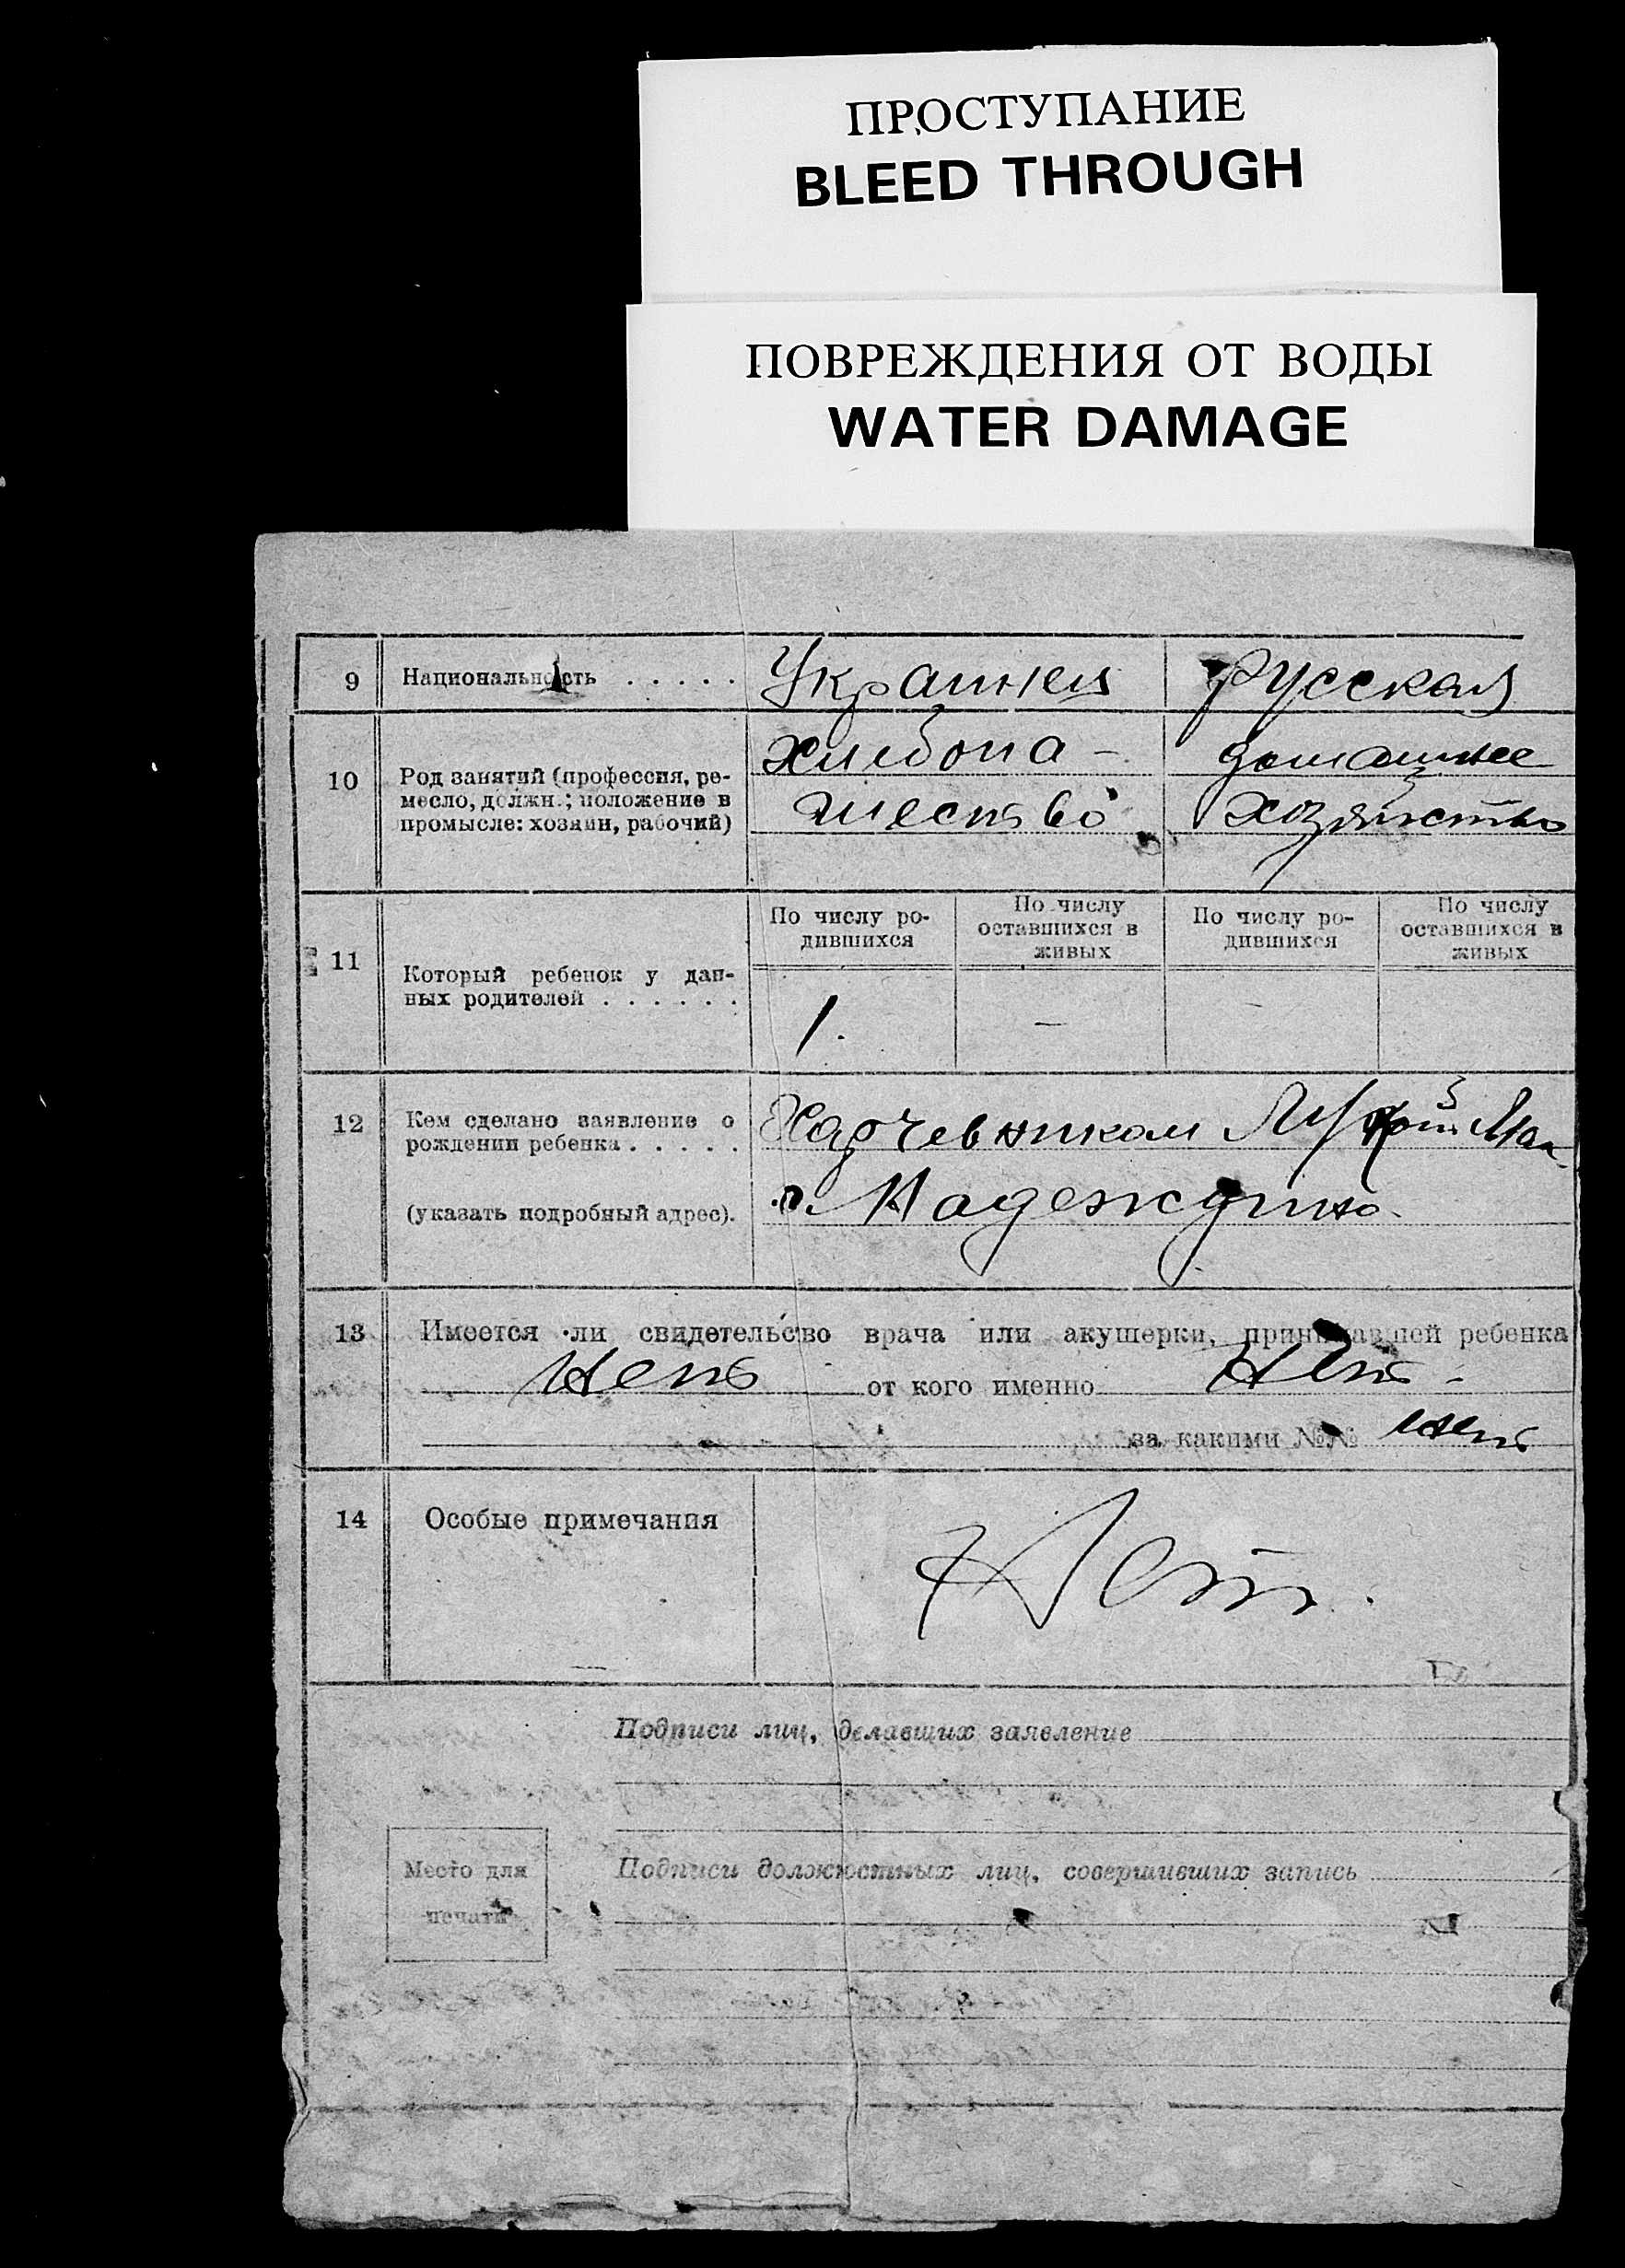 ПРОСТУПАНИЕ
BLEED THROUGH
ПОВРЕЖДЕНИЯ ОТ ВОДЫ
WATER DAMAGE
9 Национальность . . . . . Украинец Русская
10 Род занятий (профессия, ре-
месло, должн.; положение в
промысле: хозяин, рабочий)
Хлебопа-
шество
домашнее
хозяйство
11 Который ребенок у дан-
ных родителей . . . . . .
По числу ро-
дившихся
По числу
оставшихся в
живых
По числу ро-
дившихся
По числу
оставшихся в
живых
1. —
12 Кем сделано заявление о
рождении ребенка . . . . .
(указать подробный адрес).
Харчевником
Надеждино.
13 Имеется ли свидетельство врача или акушерки, принимавшей ребенка
Нет от кого именно Нет
за какими №№ Нет
14 Особые примечания Нет.
Подписи лиц, делавших заявление
Место для
печати
Подписи должностных лиц, совершивших запись